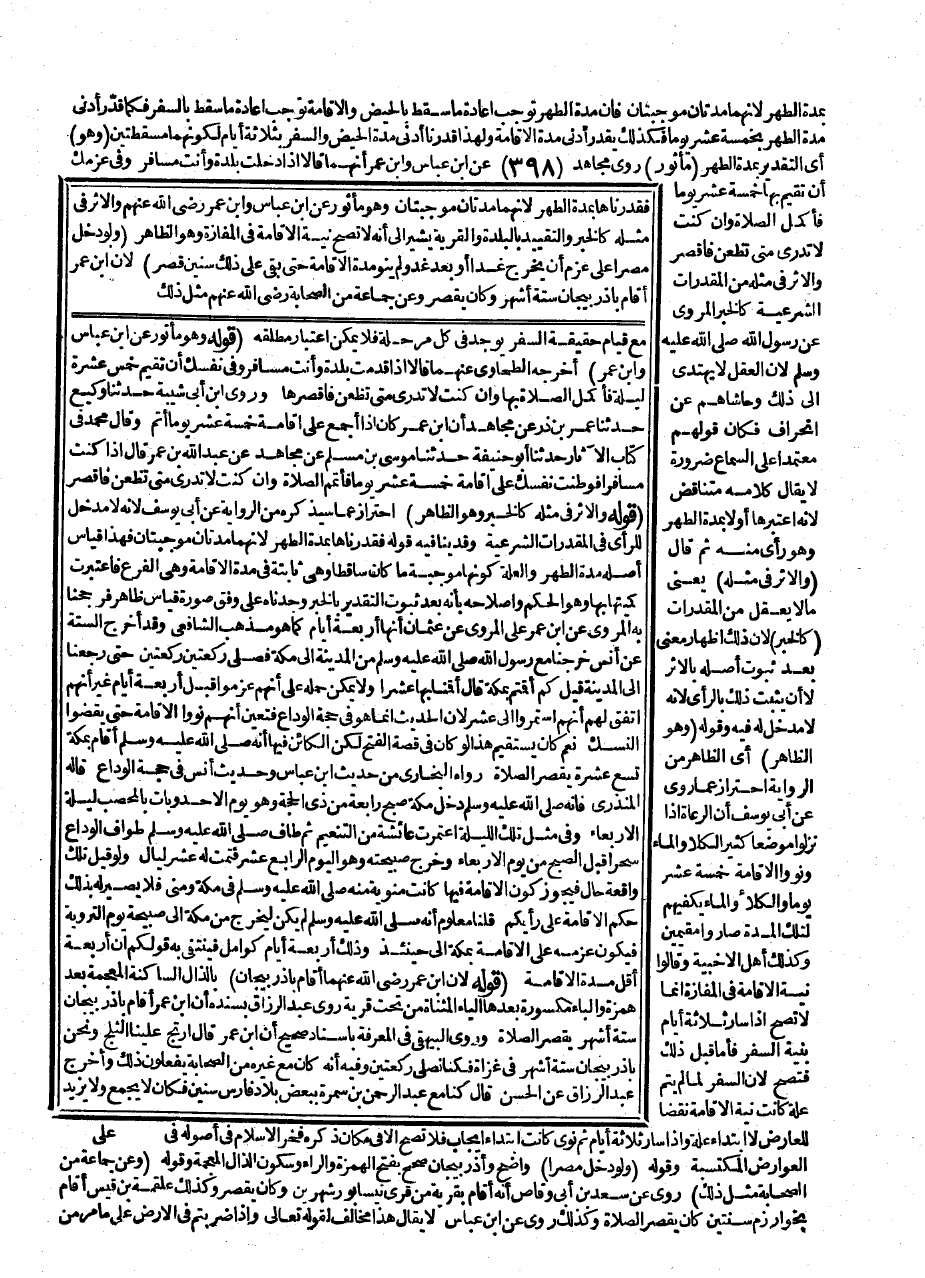 بمدة الطهر لانهما مدتان موجبتان فان مدة الطهر توجب اعادة ما سقط بالحيض والاقامة توجب اعادة ما سقط بالسفر فكما قدر أدنى
مدة الطهر بخمسة عشر يوما فكذلك يقدر أدنى مدة الاقامة ولهذا قدرنا أدنى مدة الحيض والسفر بثلاثة أيام لكونهما مسقطتين (وهو)
أى التقدير بمدة الطهر (مأثور) روى مجاهد (٣٩٨) عن ابن عباس وابن عمر أنهما قالا اذا دخلت بلدة وأنت مسافر وفى عزمك
أن تقيم بها خمسة عشر يوما
فأكمل الصلاة وان كنت
لا تدرى متى تظعن فاقصر
والاثر فى مثله من المقدرات
الشرعية كالخبر المروى
عن رسول الله صلى الله عليه
وسلم لان العقل لا يهتدى
الى ذلك وحاشاهم عن
انحراف فكان قولهم
معتمدا على السماع ضرورة
لا يقال كلامه متناقض
لانه اعتبرها أولا بمدة الطهر
وهو رأى منه ثم قال
(والاثر فى مثله) يعنى
مالا يعقل من المقدرات
(كالخبر) لان ذلك اظهار معنى
بعد ثبوت أصله بالاثر
لا أن يثبت ذلك بالرأى لانه
لا مدخل له فيه وقوله (وهو
الظاهر) أى الظاهر من
الرواية احتراز عما روى
عن أبى يوسف أن الرعاة اذا
نزلوا موضعا كثير الكلأ والماء
ونووا الاقامة خمسة عشر
يوما والكلأ والماء يكفيهم
لتلك المدة صاروا مقيمين
وكذلك أهل الاخبية وقالوا
نية الاقامة فى المفازة انما
لا تصح اذا سار ثلاثة أيام
بنية السفر فأما قبل ذلك
فتصح لان السفر لما لم يتم
علة كانت نية الاقامة نقضا
فقدرناها بمدة الطهر لانهما مدتان موجبتان وهو مأثور عن ابن عباس وابن عمر رضى الله عنهم والاثر فى
مثله كالخبر والتقييد بالبلدة والقرية يشير الى أنه لا تصح نية الاقامة فى المفازة وهو الظاهر (ولو دخل
مصرا على عزم أن يخرج غدا أو بعد غد ولم ينو مدة الاقامة حتى بقى على ذلك سنين قصر) لان ابن عمر
أقام باذربيجان ستة أشهر وكان يقصر وعن جماعة من الصحابة رضى الله عنهم مثل ذلك
مع قيام حقيقة السفر يوجد فى كل مرحلة فلا يمكن اعتبار مطلقه (قوله وهو مأثور عن ابن عباس
وابن عمر) أخرجه الطحاوى عنهما قالا اذا قدمت بلدة وأنت مسافر وفى نفسك أن تقيم خمس عشرة
ليلة فأكمل الصلاة بها وان كنت لا تدرى متى تظعن فاقصرها وروى ابن أبى شيبة حدثنا وكيع
حدثنا عمر بن ذر عن مجاهد أن ابن عمر كان اذا أجمع على اقامة خمسة عشر يوما أتم وقال محمد فى
كتاب الآثار حدثنا أبو حنيفة حدثنا موسى بن مسلم عن مجاهد عن عبد الله بن عمر قال اذا كنت
مسافرا فوطنت نفسك على اقامة خمسة عشر يوما فأتم الصلاة وان كنت لا تدرى متى تظعن فاقصر
(قوله والاثر فى مثله كالخبر وهو الظاهر) احتراز عما سيذكره من الرواية عن أبى يوسف لانه لا مدخل
للرأى فى المقدرات الشرعية وقد ينافيه قوله فقدرناها بمدة الطهر لانهما مدتان موجبتان فهذا قياس
أصله مدة الطهر والعلة كونها موجبة ما كان ساقطا وهى ثابتة فى مدة الاقامة وهى الفرع فاعتبرت
كميتها بها وهو الحكم واصلاحه بأنه بعد ثبوت التقدير بالخبر وجدناه على وفق صورة قياس ظاهر فرجحنا
به المروى عن ابن عمر على المروى عن عثمان أنها أربعة أيام كما هو مذهب الشافعى وقد أخرج الستة
عن أنس خرجنا مع رسول الله صلى الله عليه وسلم من المدينة الى مكة فصلى ركعتين ركعتين حتى رجعنا
الى المدينة قيل كم أقمتم بمكة قال أقمنا بها عشرا ولا يمكن حمله على أنهم عزموا قبل أربعة أيام غير أنهم
اتفق لهم أنهم استمروا الى عشر لان الحديث انما هو فى حجة الوداع فتعين أنهم نووا الاقامة حتى يقضوا
النسك نعم كان يستقيم هذا لو كان فى قصة الفتح لكن الكائن فيها أنه صلى الله عليه وسلم أقام بمكة
تسع عشرة يقصر الصلاة رواه البخارى من حديث ابن عباس وحديث أنس فى حجة الوداع قاله
المنذرى فانه صلى الله عليه وسلم دخل مكة صبح رابعة من ذى الحجة وهو يوم الاحد وبات بالمحصب ليلة
الاربعاء وفى مثل تلك الليلة اعتمرت عائشة من التنعيم ثم طاف صلى الله عليه وسلم طواف الوداع
سحرا قبل الصبح من يوم الاربعاء وخرج صبيحته وهو اليوم الرابع عشر فتمت له عشر ليال ولو قيل تلك
واقعة حال فيجوز كون الاقامة فيها كانت منوية منه صلى الله عليه وسلم فى مكة ومنى فلا يصير له بذلك
حكم الاقامة على رأيكم قلنا معلوم أنه صلى الله عليه وسلم لم يكن ليخرج من مكة الى صبيحة يوم التروية
فيكون عزمه على الاقامة بمكة الى حينئذ وذلك أربعة أيام كوامل فينتفى به قولكم ان أربعة
أقل مدة الاقامة (قوله لان ابن عمر رضى الله عنهما أقام باذربيجان) بالذال الساكنة المعجمة بعد
همزة والباء مكسورة بعدها الياء المثناة من تحت قرية روى عبد الرزاق بسنده أن ابن عمر أقام باذربيجان
ستة أشهر يقصر الصلاة وروى البيهقى فى المعرفة باسناد صحيح أن ابن عمر قال ارتج علينا الثلج ونحن
باذربيجان ستة أشهر فى غزاة فكنا نصلى ركعتين وفيه أنه كان مع غيره من الصحابة يفعلون ذلك وأخرج
عبد الرزاق عن الحسن قال كنا مع عبد الرحمن بن سمرة ببعض بلاد فارس سنين فكان لا يجمع ولا يزيد
على
للعارض لا ابتداء علة واذا سار ثلاثة أيام ثم نوى كانت ابتداء ايجاب فلا تصح الا فى مكان ذكره فخر الاسلام فى أصوله فى
العوارض المكتسبة وقوله (ولو دخل مصرا) واضح وأذربيجان صحح بفتح الهمزة والراء وسكون الذال المعجمة وقوله (وعن جماعة من
الصحابة مثل ذلك) روى عن سعد بن أبى وقاص أنه أقام بقرية من قرى نيسابور شهرين وكان يقصر وكذلك علقمة بن قيس أقام
بخوارزم سنتين كان يقصر الصلاة وكذلك روى عن ابن عباس لا يقال هذا مخالف لقوله تعالى واذا ضربتم فى الارض على ما مر من